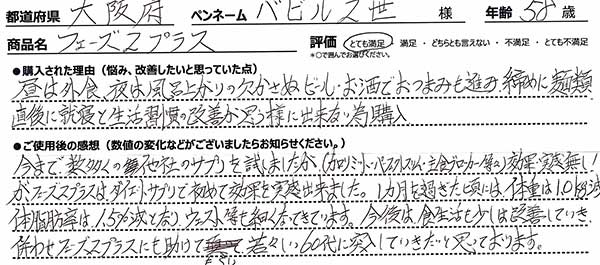 都道府県 大阪府 ペンネーム バビル2世 様 年齢 58 歳
商品名 フェーズ2プラス 評価 とても満足 ・ 満足 ・ どちらとも言えない ・ 不満足 ・ とても不満足
*○で囲んでお選びください。
●購入された理由（悩み、改善したいと思っていた点）
昼は外食、夜は風呂上がりの欠かさぬビール・お酒でおつまみも進み、締めに麺類
直後に就寝と生活習慣の改善が思う様に出来ない為購入
●ご使用後の感想（数値の変化などがございましたらお知らせください。）
今まで数多くの他社のサプリを試しましたが(カロリミット・ 等々)効果・実感無し!
がフェーズ2プラスは、ダイエットサプリで初めて効果を実感出来ました。1カ月を過ぎた頃には、体重は1.0kg減
体脂肪率は、1.5%減となり、ウェスト等も細くなってきています。今後は、食生活も少しは改善していき、
併わせフェーズ2プラスにも助けて 若々しい60代に突入していきたいと思っております。